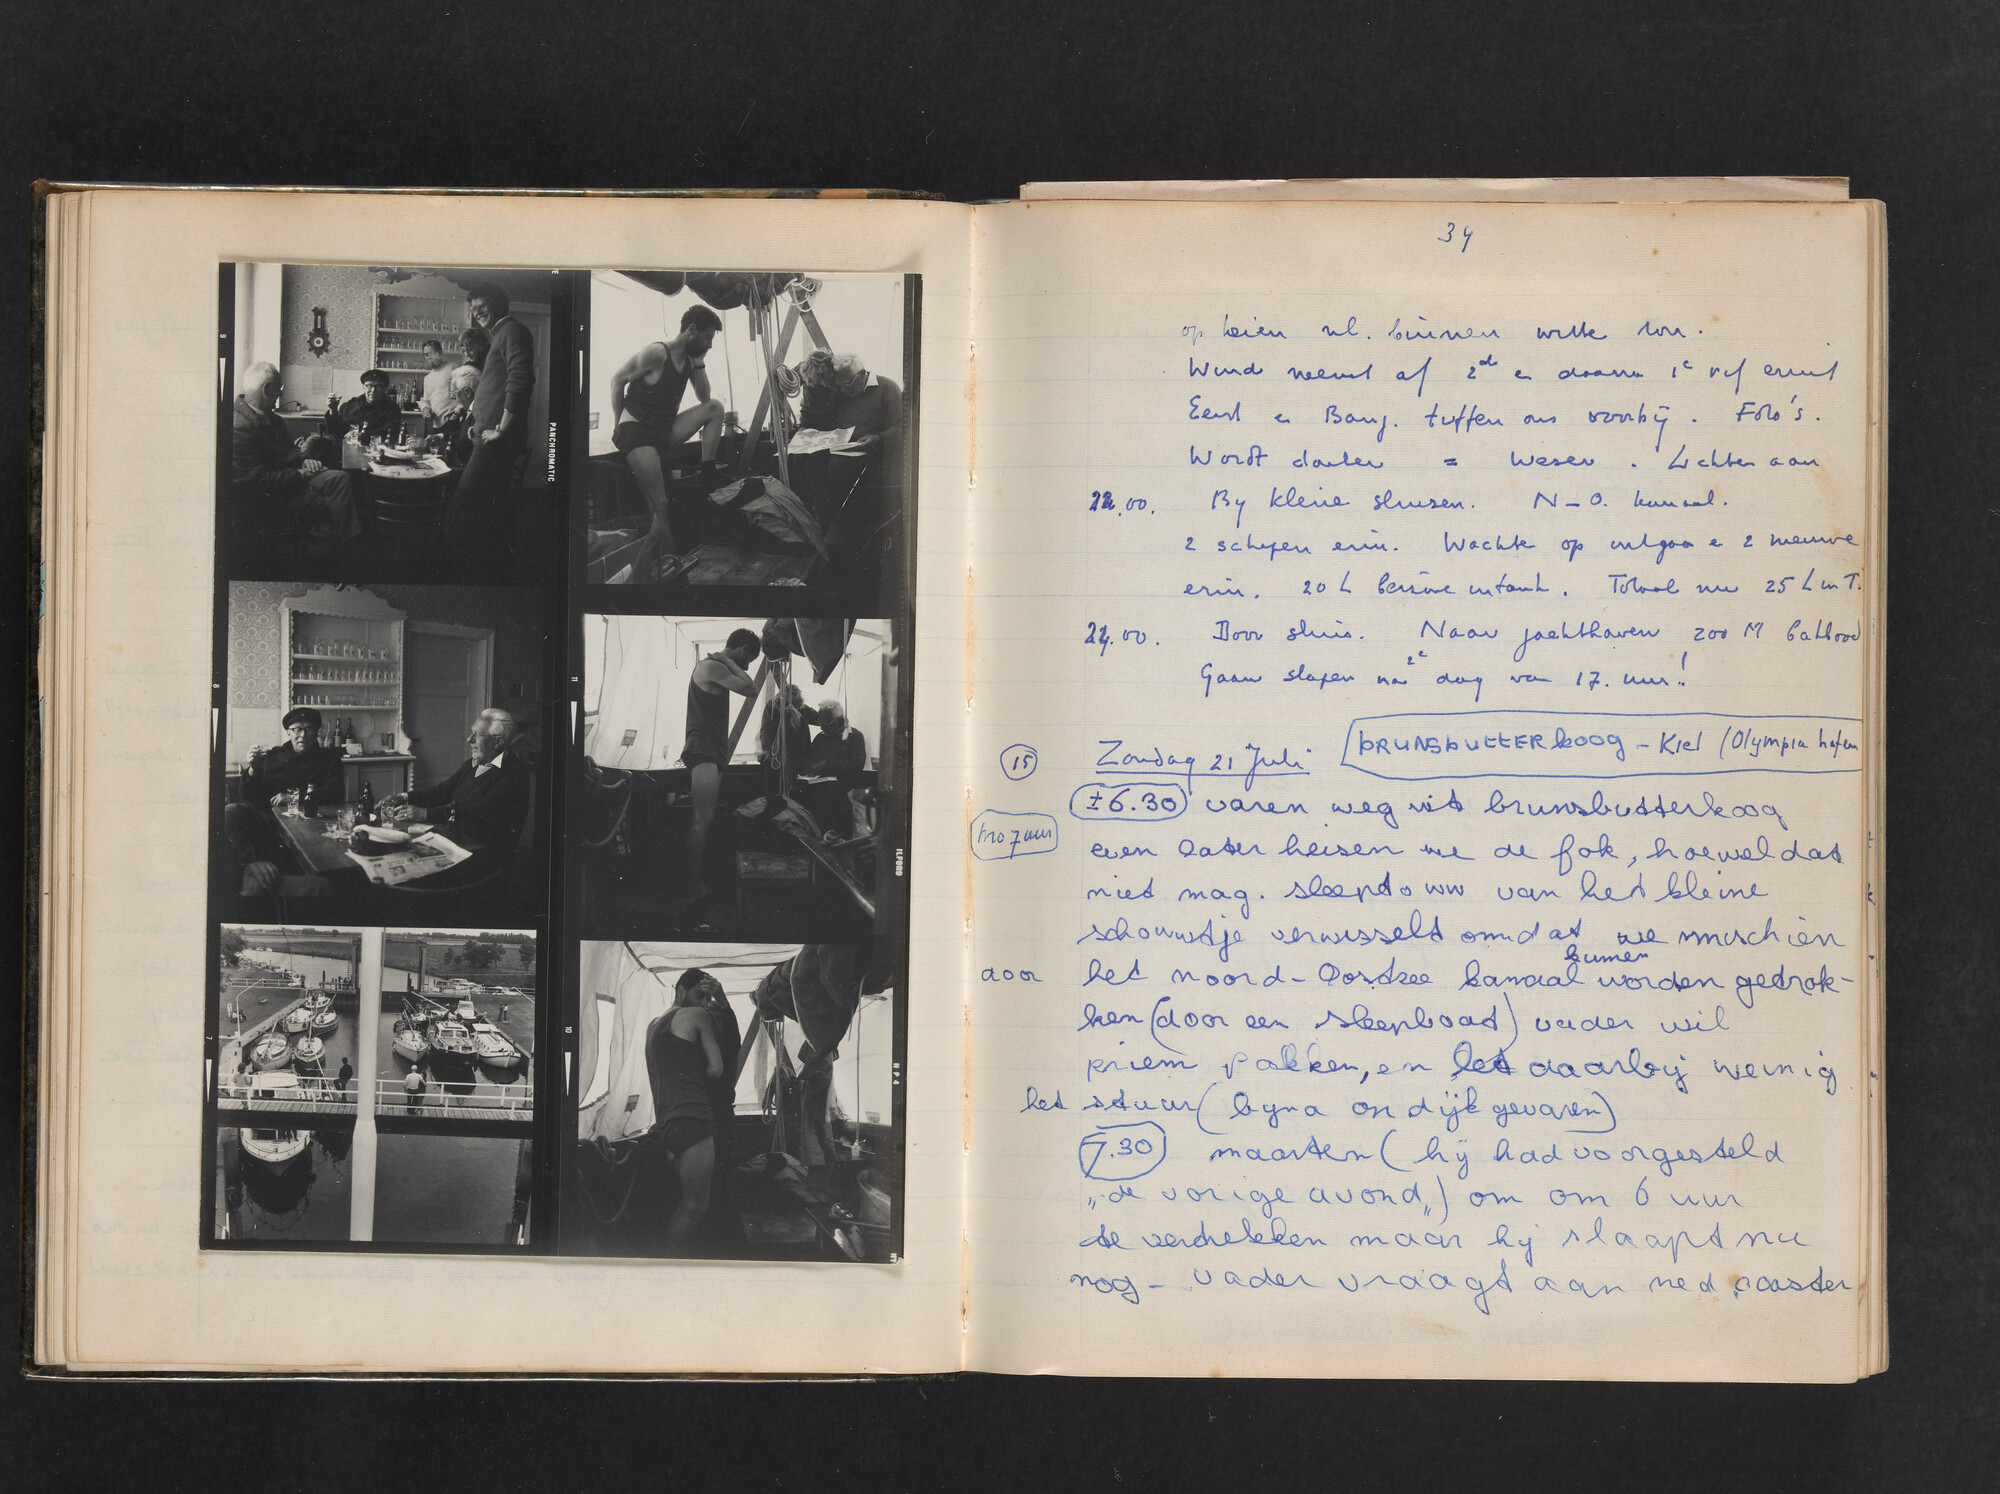 PANCHROMATIC
ILFORD
HP4
9
8
7
11
10
34
op        nl. binnen witte ton.
Wind neemt af 2de  daarna 1e rif eruit
Eend    tuffen ons voorbij. Foto's.
Wordt donker = Weser. Lichten aan
22.00. By kleine sluizen. N-O. kanaal.
2 schepen erin. Wachten op        2 nieuwe
erin. 20 L benzine in tank. Totaal nu 25 L in T.
24.00. Door sluis. Naar jachthaven 200 M bakboord
Gaan slapen na 2e dag van 17. uur!!
15 Zondag 21 Juli BRUNSBUTTERKOOG - Kiel (Olympia hafen
±6.30 varen weg uit brunsbutterkoog
mo 7 uur
even later heisen we de fok, hoewel dat
niet mag. sleeptouw van het kleine
schouwtje verwisseld omdat we misschien
kunnen
door het noord-Oostzee kanaal worden getrok-
ken (door een sleepboot) vader wil
priem pakken, en let daarbij weinig
het stuur (byna op dijk gevaren)
7.30 maarten (hij had voorgesteld
„de vorige avond„) om om 6 uur
te vertrekken maar hij slaapt nu
nog - vader vraagt aan ned. coaster